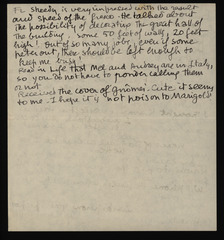 Fr. Sheedy is very impressed with the result
and speed of the pieces. He talked about
the possibility of decorating the great hall of
the building. Some 50 feet of wall, 20 feet
high! Out of so many jobs, even if some
peter out, there should be left enough to
keep me busy!
Read in Life that Mel and Audrey are in Italy,
so you do not have to ponder calling them
or not.
Received the cover of Gnômes. Cute, it seems
to me. I hope it is "not poison to Marigold"